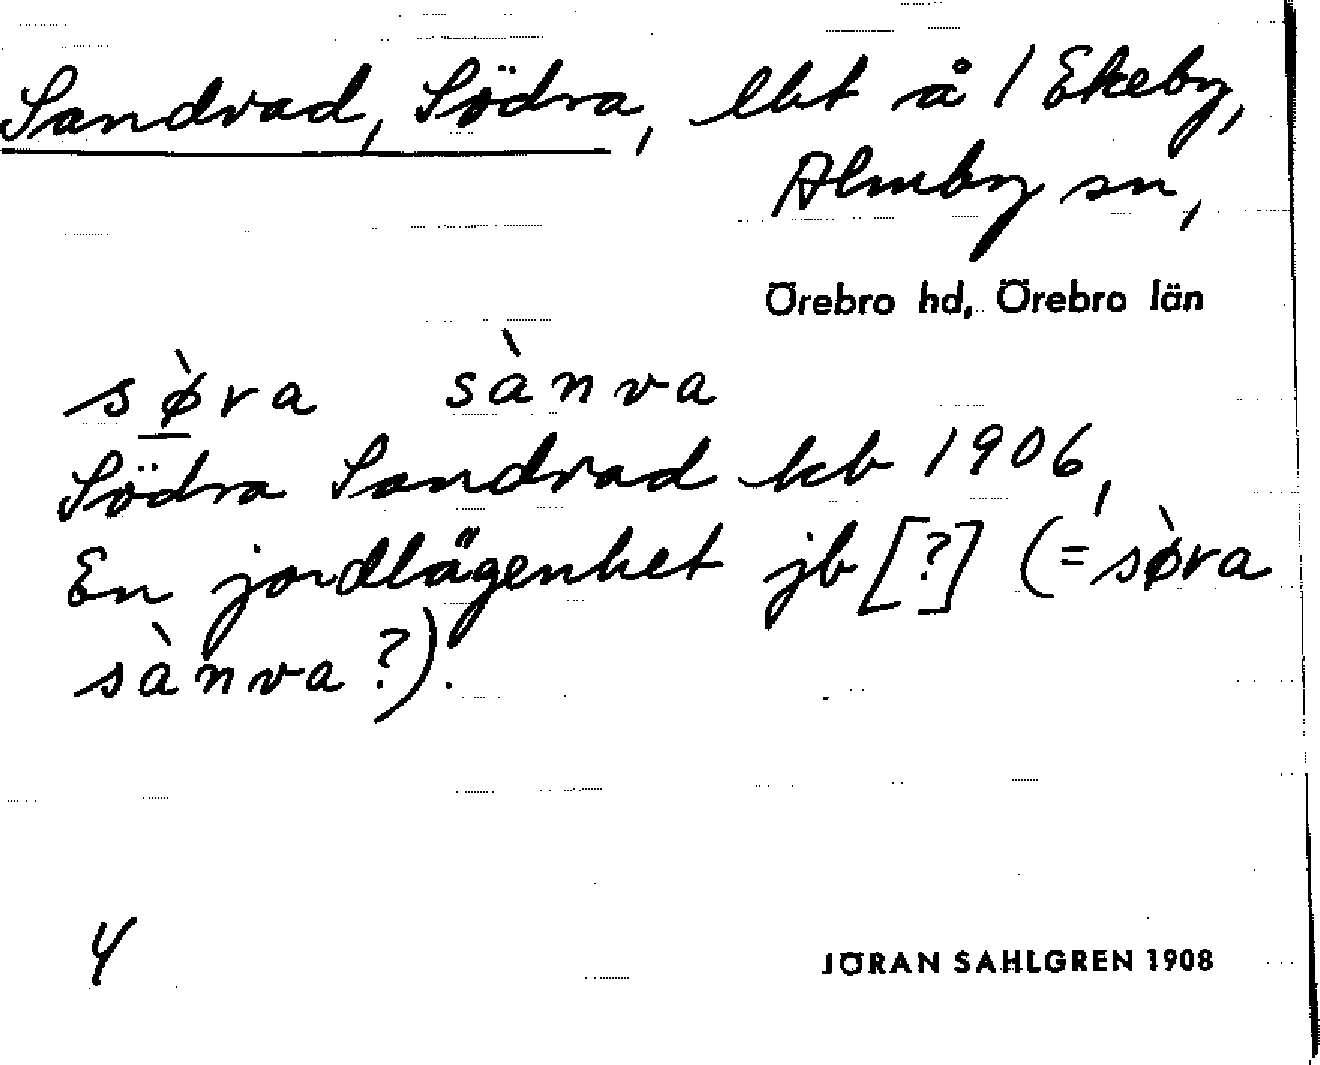 Sandvad, Södra, lht å 1 Ekeby,
Almby sn,
Örebro hd, Örebro län
sø̀va sànva
Södra Sandvad kb 1906,
En jordlägenhet jb [?] (= sø̀va
sànva?).
4
JÖRAN SAHLGREN 1908